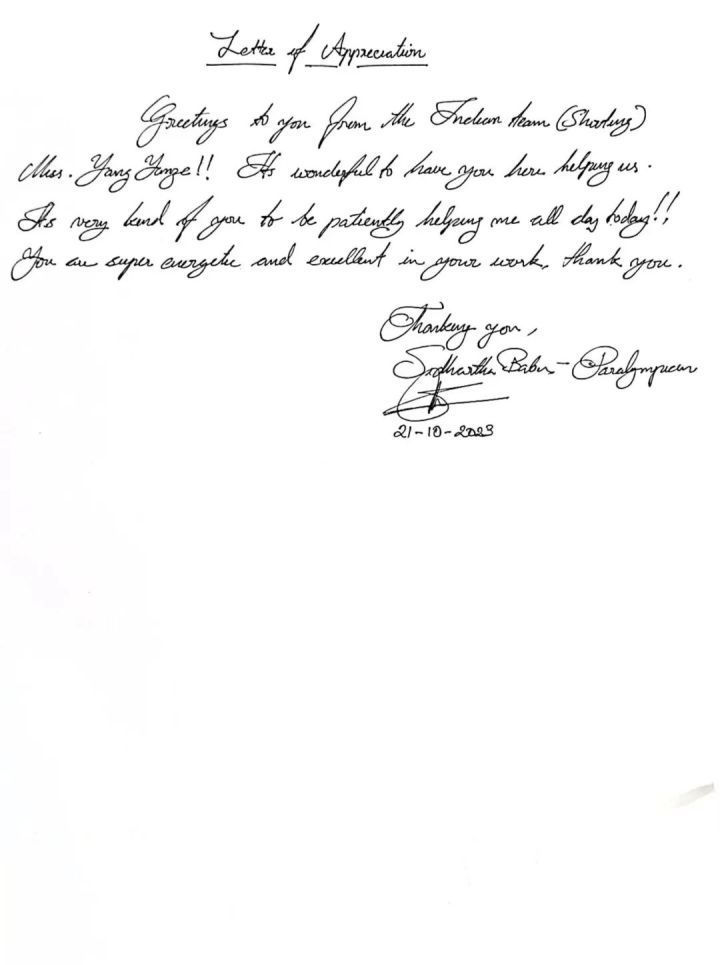 Letter of Appreciation
Greetings to you from the Indian team (Shooting)
Miss. Yang Yange!! Its wonderful to have you here helping us.
Its very kind of you to be patiently helping me all day today!!
You are super energetic and excellent in your work, thank you.
Thanking you,
Sidhartha Babu - Paralympian
21-10-2023